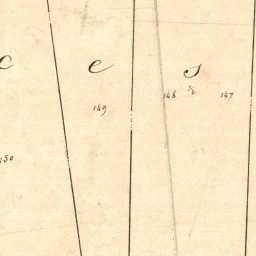 c e s
149 148 147
150